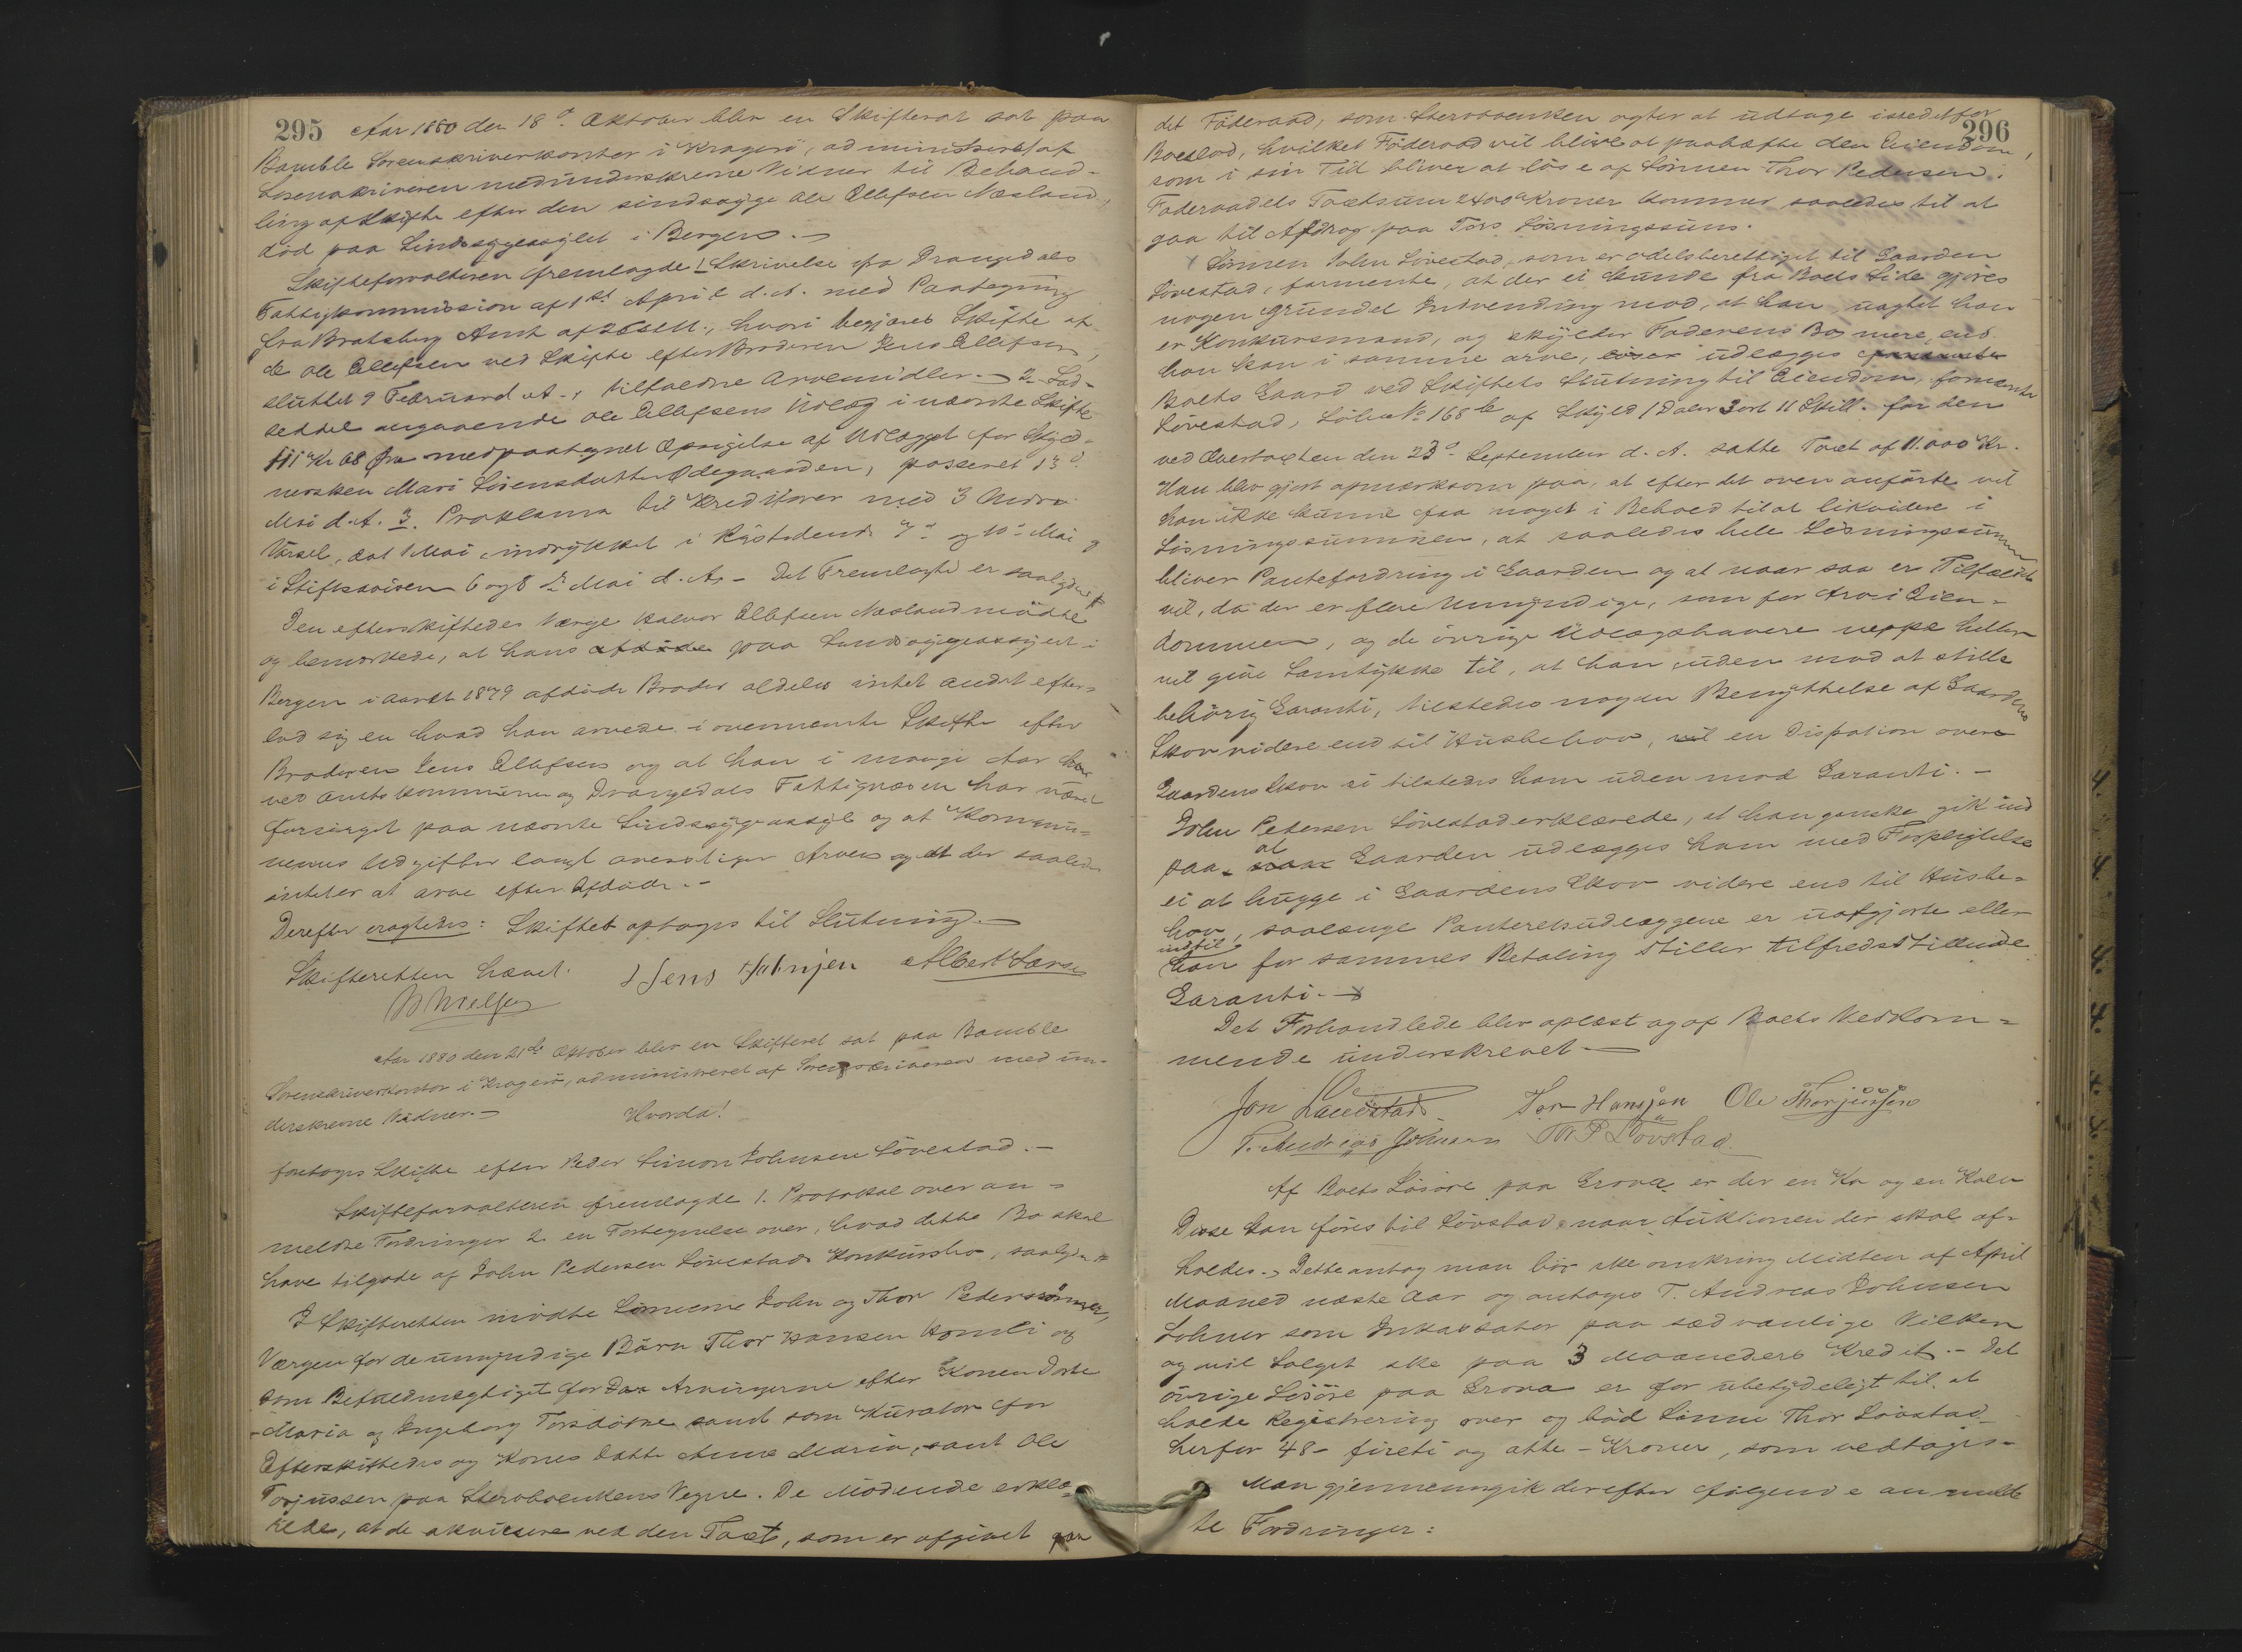 295
Aar 1880 den 18de Oktober blev en Skifteret sat paa
Bamble Sorenskriverkontor i Kragerö, administreret af
Sorenskriveren med underskrevne Vidner til Behand-
ling af Skifte efter den sindssyge Ole Ellefsen Næsland,
död paa Sindssygeasylet i Bergen. —
Skifteforvalteren fremlagde 1 Skrivelse fra Drangedals
Fattigkommission af 1st April d. A. med Paategning
fra Bratsberg Amt af 26 s. M., hvori begjæres Skifte af
de Ole Ellefsen ved Skifte efter Broderen Jens Ellefsen,
sluttet 9 Februar d. A., tilfaldne Arvemidler. — 2. Lod-
seddel angaaende Ole Ellefsens Udlæg i nævnte Skifte
111 Kr 08 Öre med paategnet Opsigelse af Udlægget for Skyld-
nersken Mari Sörensdatter Ödegaarden, passeret 13de
Mai d. A. 3. Proklama til Kreditorer med 3 Mdrs
Varsel, dat 1 Mai indrykket i Rigstidende 7de og 10de Mai og
i Stiftsavisen 6 og 8de Mai d. A. – Det Fremlagte er saalydende
Den efterskiftedes Værge Halvor Ellefsen Næsland mödte
og bemærkede, at hans afdöde paa Sindssygeasylet i
Bergen i Aaret 1879 afdöde Broder aldeles intet andet efter-
lod sig en hvad han arvede i ovennævnte Skifte efter
Broderen Jens Ellefsen og at han i mange Aar har
ved Amtskommunen og Drangedals Fattigvæsen har været
forsörget paa nævnte Sindssygeasyl og at Kommu-
nernes Udgifter langt overstiger Arven og at der saaledes
intet er at arve efter Afdöde. –
Derefter eragtedes: Skiftet optages til Slutning. —
Skifteretten hævet. Jens Halvorsen Albert Larsen
Aar 1880 den 21de Oktober blev en Skifteret sat paa Bamble
Sorenskriverkontor i Kragerö, administreret af Sorenskriveren med un-
derskrevne Vidner. — Hvorda!
foretoges Skifte efter Peder Simon Johnsen Lövestad. —
Skifteforvalteren fremlagde 1. Protokol over an-
meldte Fordringer 2. en Fortegnelse over, hvad dette Bo skal
have tilgode af John Pedersen Lövestads Konkursbo, saalydende
I Skifteretten mödte Sönnerne John og Thor Pederssönner,
Værgen for de umyndige Börn Thor Hansen Homli og
som Befuldmægtiget for Arvingerne efter Konen Dorte
Maria og Ingeborg Torsdötre samt som Kurator for
Efterskiftedes og Kones Datter Anne Maria, samt Ole
Torjussen paa Sterboenkens Vegne. De Mödende erklæ-
rede, at de akviescere ved den Taxt, som er afgivet paa
296
det Föderaad, som Sterboenken agter at udtage istedetfor
Boeslod, hvilket Föderaad vil blive at paahæfte den Eiendom,
som i sin Tid bliver at löse af Sönnen Thor Pedersen.
Föderaadets Taxtsum 2400 Kroner kommer saaledes til at
gaa til Afdrag paa Tors Lösningssum.
Sönnen John Lövestad, som er odelsberettiget til Gaarden
Lövestad, formente, at der ei kunde fra Boets Side gjöres
nogen grundet Indvending mod, at han, uagtet han
er Konkursmand, og skylder Faderens Bo mere, end
han kan i samme arve, udlægges
Boets Gaard ved Skiftets Slutning til Eiendom, fornævnte
Lövestad, Löbe No 168 b af Skyld 1 Daler 3 ort 11 Skill. for den
ved Overtaxten den 23de September d. A. satte Taxt af 11.000 Kr.
Han blev gjort opmærksom paa, at efter det oven anförte vil
han ikke kunne faa noget i Behold til at likvidere i
Lösningssummen, at saaledes hele Lösningssummen
bliver Pantefordring i Gaarden og at naar saa er Tilfældet
vil, da der er flere Umyndige, som faar Arv i Eien-
dommen, og de övrige Udlægshavere neppe heller
vil give Samtykke til, at han uden mod at stille
behörig Garanti, tilstedes nogen Benyttelse af Gaardens
Skov videre end til Husbehov, vil en Dispotion over
Gaardens Skov ei tilstedes ham uden mod Garanti. –
John Pedersen Lövestad erklærede, at han ganske gik ind
paa at Gaarden udlægges ham med Forpligtelse
ei at hugge i Gaardens Skov videre end til Husbe-
hov, saalænge Panteretsudlæggene er uafgjorte eller
indtil han for sammes Betaling stiller tilfredsstillende
Garanti. —
Det Forhandlede blev oplæst og af Boets Vedkom-
mende underskrevet —
Jon Lövestad. Tor Hansen Ole Thorjussen
T. Andreas Johnsen Th P Lövstad.
Af Boets Lösöre paa Grova er der en Ko og en Kalv
Disse kan föres til Lövstad naar Auktionen der skal af-
holdes. Dette antog man bör ske omkring Midten af April
Maaned næste Aar og antoges T. Andreas Johnsen
Lohner som Inkassator paa sædvanlige Vilkaar
og vil Salget ske paa 3 Maaneders Kredit. – Det
övrige Lösöre paa Grova er for ubetydeligt til at
holde Registrering over og böd Sönnen Thor Lövstad
herfor 48 – firti og otte – Kroner, som vedtoges. –
Man gjennemgik derefter fölgende anmeld-
te Fordringer: